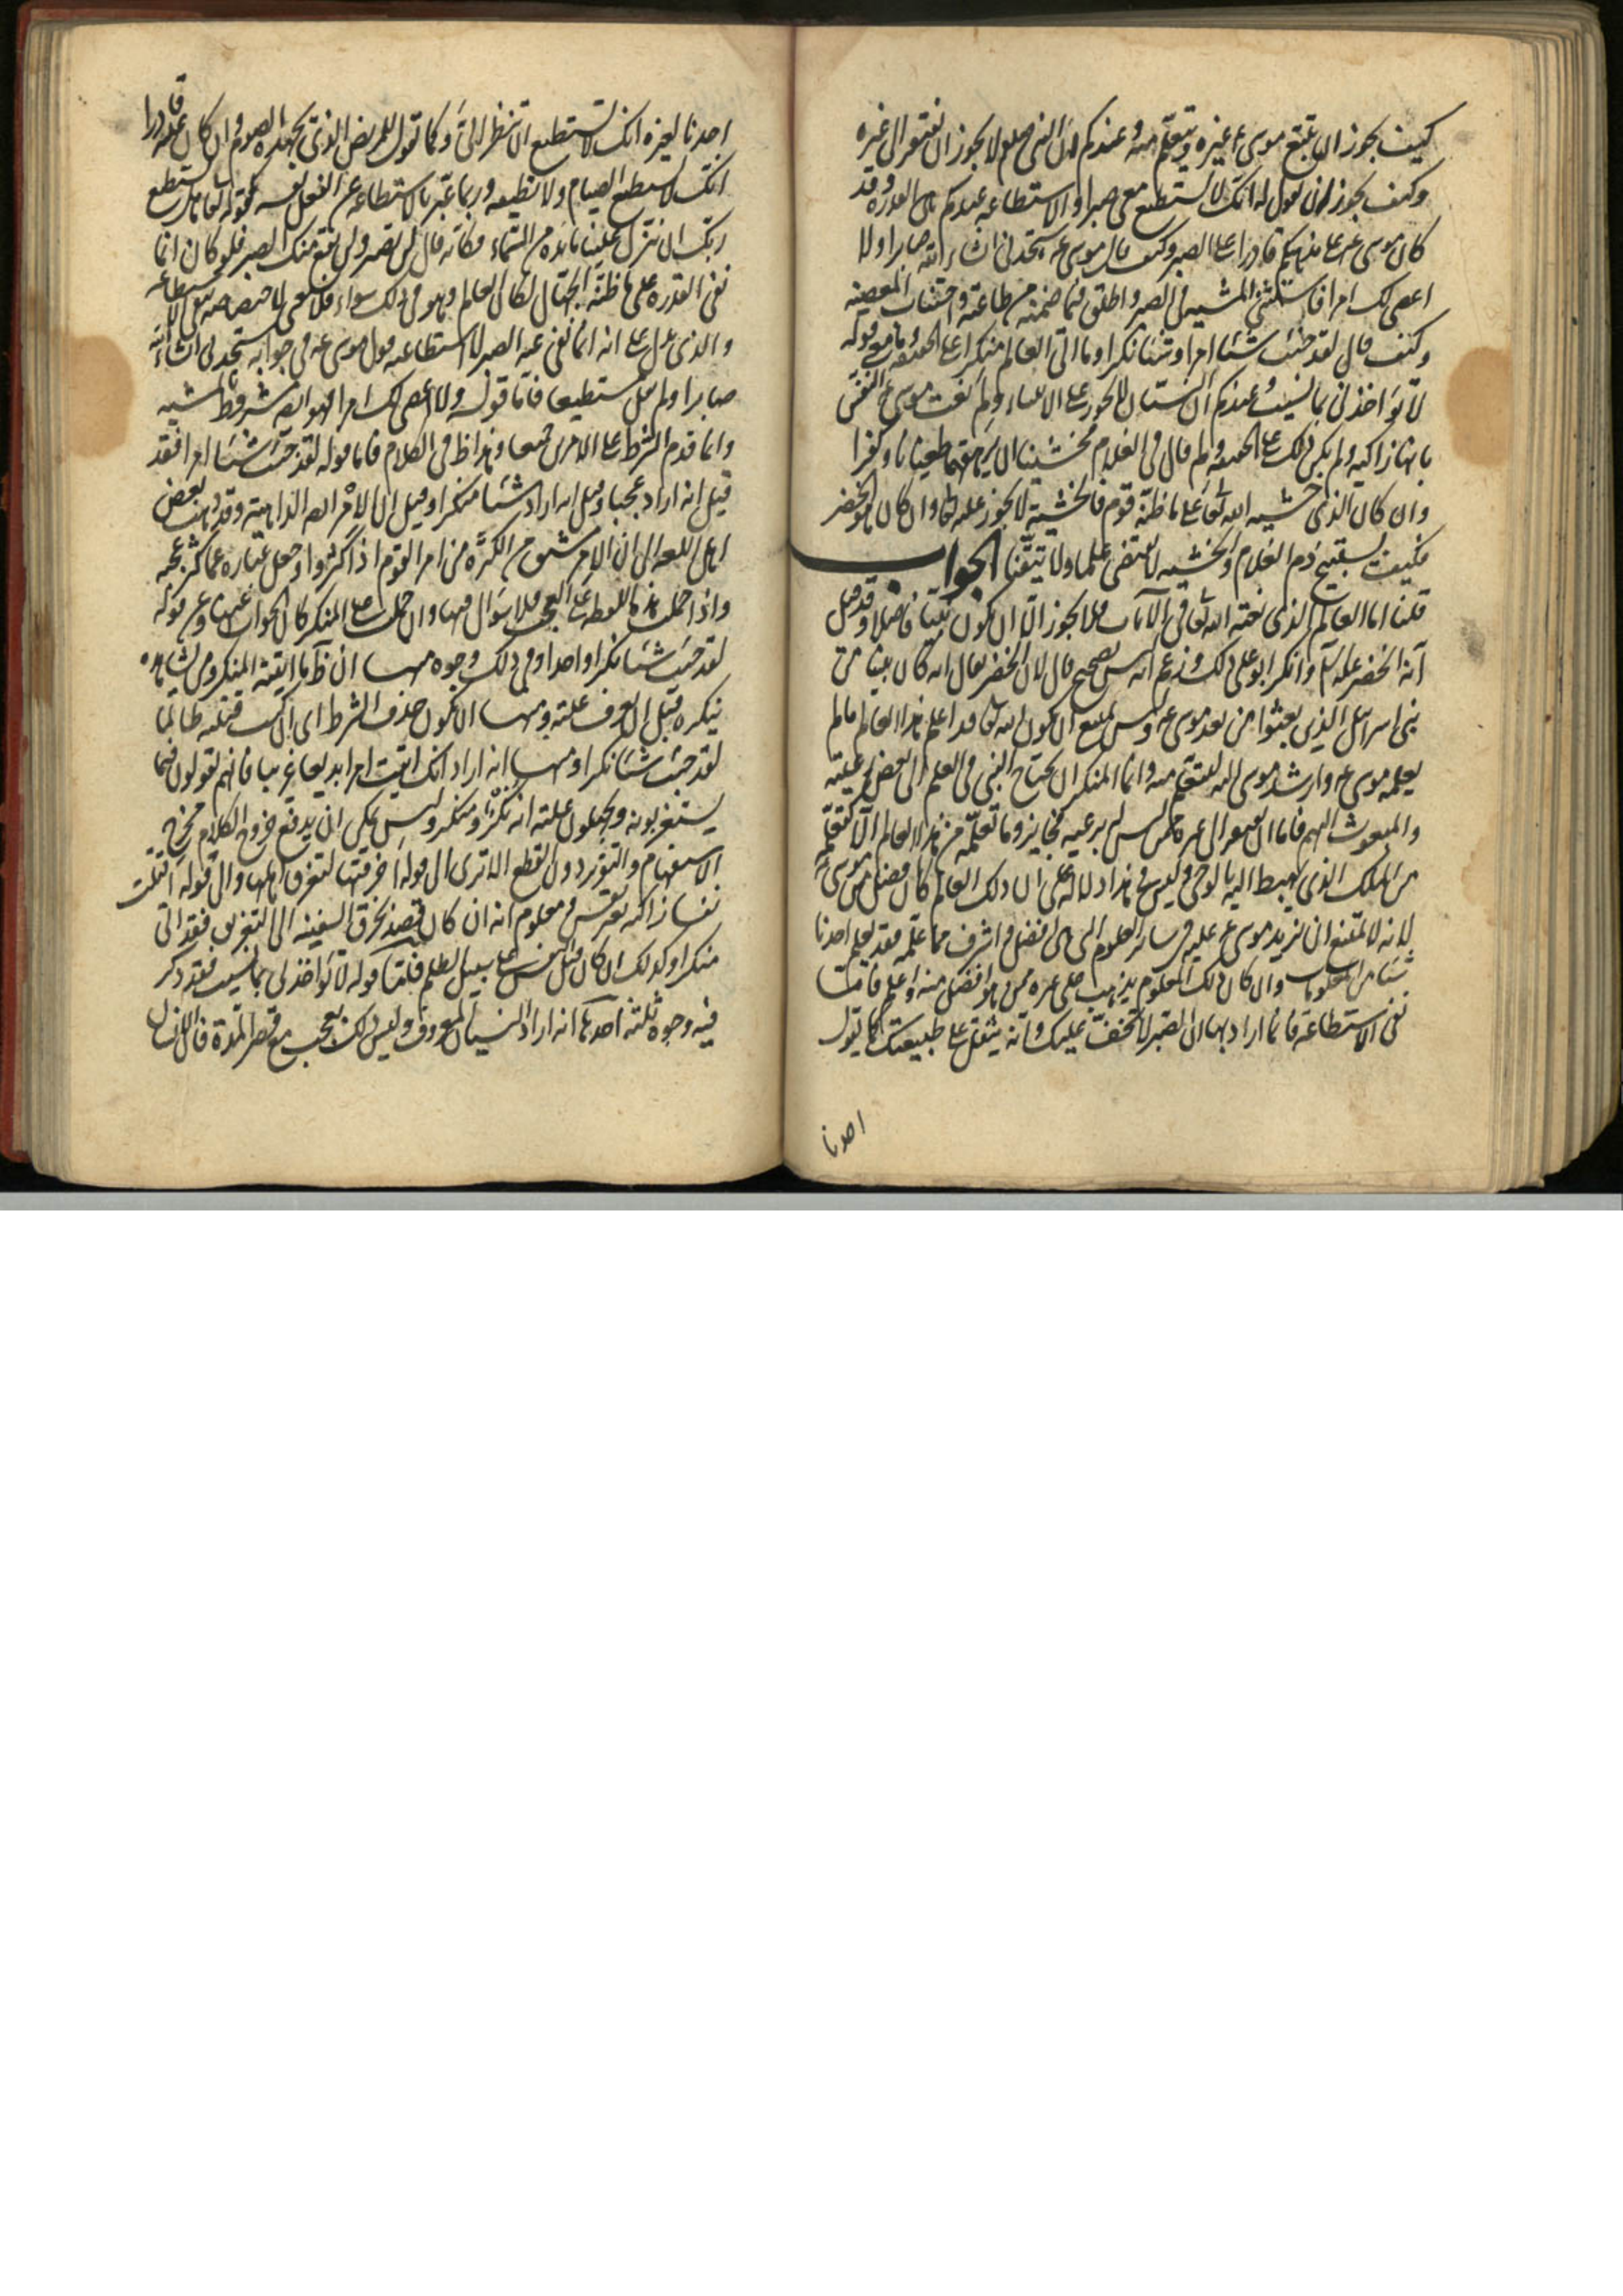 كيف يجوز ان يتبع موسى ع غيره ويتعلم منه وعندكم ان النبى صلعم لا يجوز ان يفتقر الى غيره
وكيف يجوز ان يقول له انك لا تستطيع معى صبرا والاستطاعة عندكم هى القدرة وقد
كان موسى ع على مذهبكم قادرا على الصبر وكيف قال موسى ع ستجدنى ان شاء الله صابرا ولا
اعصى لك امرا فاستثنى المشية فى الصبر واطلق فيما ضمنه من طاعته واجتناب المعصية
وكيف قال لقد جئت شيئا امرا وشيئا نكرا وما اتى العالم منكرا على الحقيقة وما معنى قوله
لا تؤاخذنى بما نسيت وعندكم ان النسيان لا يجوز على الانبياء ولم نعت موسى ع النفس
بانها زاكية ولم يكن كذلك على الحقيقة ولم قال فى الغلام فخشينا ان يرهقهما طغيانا وكفرا
وان كان الذى خشيه الله تعالى على ما ظنه قوم فالخشية لا يجوز عليه تعالى وان كان هو الخضر
فكيف يستبيح دم الغلام والخشية لا تقتضى علما ولا تيقنا الجواب
قلنا اما العالم الذى نعته الله تعالى فى الآيات فلا يجوز الا ان يكون نبيا فاضلا وقد قيل
انه الخضر عليه السلام وانكر ابو على ذلك وزعم انه ليس بصحيح قال لان الخضر يقال انه كان نبيا من
بنى اسرائيل الذين بعثوا من بعد موسى ع وليس يمتنع ان يكون الله تعالى قد اعلم هذا العالم ما لم
يعلمه موسى ع وارشد موسى اليه ليتعلم منه وانما المنكر ان يحتاج النبى فى العلم الى بعض رعيته
والمبعوث اليهم فاما ان يفتقر الى غيره ممن ليس له برعية فجايز وما تعلمه من هذا العالم الا كتعلمه
من الملك الذى يهبط اليه بالوحى وليس فى هذا دلالة على ان ذلك العالم كان افضل من موسى ع
لانه لا يمتنع ان يزيد موسى ع عليه فى ساير العلوم التى هى افضل واشرف مما علمه فقد يعلم احدنا
شيئا من المعلومات وان كان ذلك المعلوم يذهب على غيره ممن هو افضل منه واعلم فاما
نفى الاستطاعة فانما اراد بها ان الصبر لا يخف عليك وانه يثقل على طبيعتك كما يقول
احدنا
احدنا لغيره انك لا تستطيع ان تنظر الىّ وكما تقول للمريض الذى يجهده الصوم وان كان عليه قادرا
انك لا تستطيع الصيام ولا تطيقه وربما عبر بالاستطاعة عن الفعل نفسه كقوله تعالى هل يستطيع
ربك ان ينزل علينا مائدة من السماء فكانه قال لن تصبر ولن يقع منك الصبر فلو كان انما
نفى القدرة على ما ظنه الجهال لكان العالم وهو فى ذلك سواء فلا معنى لاختصاصه بنفى الاستطاعة
والذى يدل على انه انما نفى عنه الصبر لا استطاعته قول موسى ع فى جوابه ستجدنى ان شاء الله
صابرا ولم يقل مستطيعا فاما قوله ولا اعصى لك امرا فهو ايضا مشروط بالمشية
وانما قدم الشرط على الامرين جميعا وهذا ظ فى الكلام فاما قوله لقد جئت شيئا امرا فقد
قيل انه اراد عجبا وقيل انه اراد شيئا منكرا وقيل ان الامر ايضا الداهية وقد ذهب بعض
اهل اللغة الى ان الامر مشتق من الكثرة من امر القوم اذا كثروا وجعل عبارة عما كثر عجبه
واذا حملت هذه اللفظة على العجب فلا سوال فيها وان حملت على المنكر كان الجواب عنها وعن قوله
لقد جئت شيئا نكرا واحدا وفى ذلك وجوه منها ان ظ ما اتيته المنكر ومن يشاهده
ينكره قبل ان يعرف علته ومنها ان يكون حذف الشرط اى ان كنت قتلته ظالما
لقد جئت شيئا نكرا ومنها انه اراد انك اتيت امرا بديعا غريبا فانهم يقولون فيما
يستغربونه ويجهلون علته انه نكر ومنكر وليس يمكن ان يدفع خروج الكلام مخرج
الاستفهام والتقرير دون القطع الا ترى الى قوله اخرقتها لتغرق اهلها والى قوله اقتلت
نفسا زاكية بغير نفس ومعلوم انه ان كان قصد بخرق السفينة الى التغريق فقد اتى
منكرا وكذلك ان كان قتل النفس على سبيل الظلم فاما قوله لا تؤاخذنى بما نسيت فقد ذكر
فيه وجوه ثلثة احدها انه اراد النسيان المعروف وليس ذلك بعجب مع قصر المدة فان الانسان